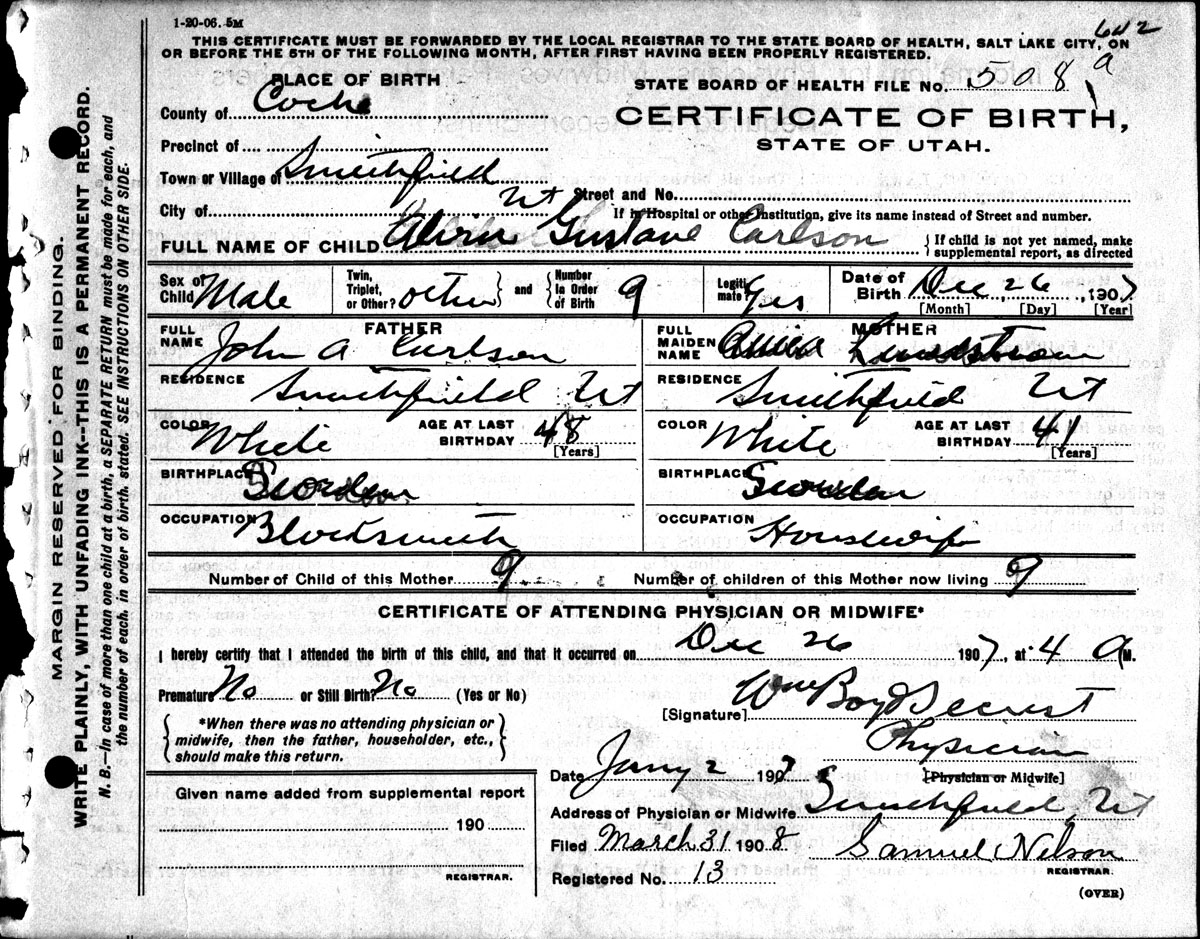 1-20-06. 5M
642
THIS CERTIFICATE MUST BE FORWARDED BY THE LOCAL REGISTRAR TO THE STATE BOARD OF HEALTH, SALT LAKE CITY, ON
OR BEFORE THE 5TH OF THE FOLLOWING MONTH, AFTER FIRST HAVING BEEN PROPERLY REGISTERED.
PLACE OF BIRTH
STATE BOARD OF HEALTH FILE No. 508 a
County of Cache
CERTIFICATE OF BIRTH,
STATE OF UTAH.
Precinct of
Town or Village of Smithfield
City of Ut Street and No.
If in Hospital or other Institution, give its name instead of Street and number.
FULL NAME OF CHILD Gustave Carlson { If child is not yet named, make
supplemental report, as directed
Sex of Child Male Twin, Triplet, or Other? other and Number in Order of Birth 9 Legitimate? Yes Date of Birth Dec 26, 1907
[Month] [Day] [Year]
FATHER
FULL NAME John A Carlson
RESIDENCE Smithfield Ut
COLOR White AGE AT LAST BIRTHDAY 48 [Years]
BIRTHPLACE Sweden
OCCUPATION Blacksmith
MOTHER
FULL MAIDEN NAME Lindstrom
RESIDENCE Smithfield Ut
COLOR White AGE AT LAST BIRTHDAY 41 [Years]
BIRTHPLACE Sweden
OCCUPATION Housewife
Number of Child of this Mother 9 Number of children of this Mother now living 9
CERTIFICATE OF ATTENDING PHYSICIAN OR MIDWIFE*
I hereby certify that I attended the birth of this child, and that it occurred on Dec 26 1907, at 4 A M.
Premature No or Still Birth? No (Yes or No)
[Signature] Wm Boyd Secrist
*When there was no attending physician or
midwife, then the father, householder, etc.,
should make this return.
Physician
[Physician or Midwife]
Date Jany 2 1907
Given name added from supplemental report
190
REGISTRAR.
Address of Physician or Midwife Smithfield, Ut
Filed March 31 1908 Samuel Nelson
REGISTRAR.
Registered No. 13
(OVER)
MARGIN RESERVED FOR BINDING.
WRITE PLAINLY, WITH UNFADING INK--THIS IS A PERMANENT RECORD.
N. B.--In case of more than one child at a birth, a SEPARATE RETURN must be made for each, and
the number of each, in order of birth, stated. SEE INSTRUCTIONS ON OTHER SIDE.